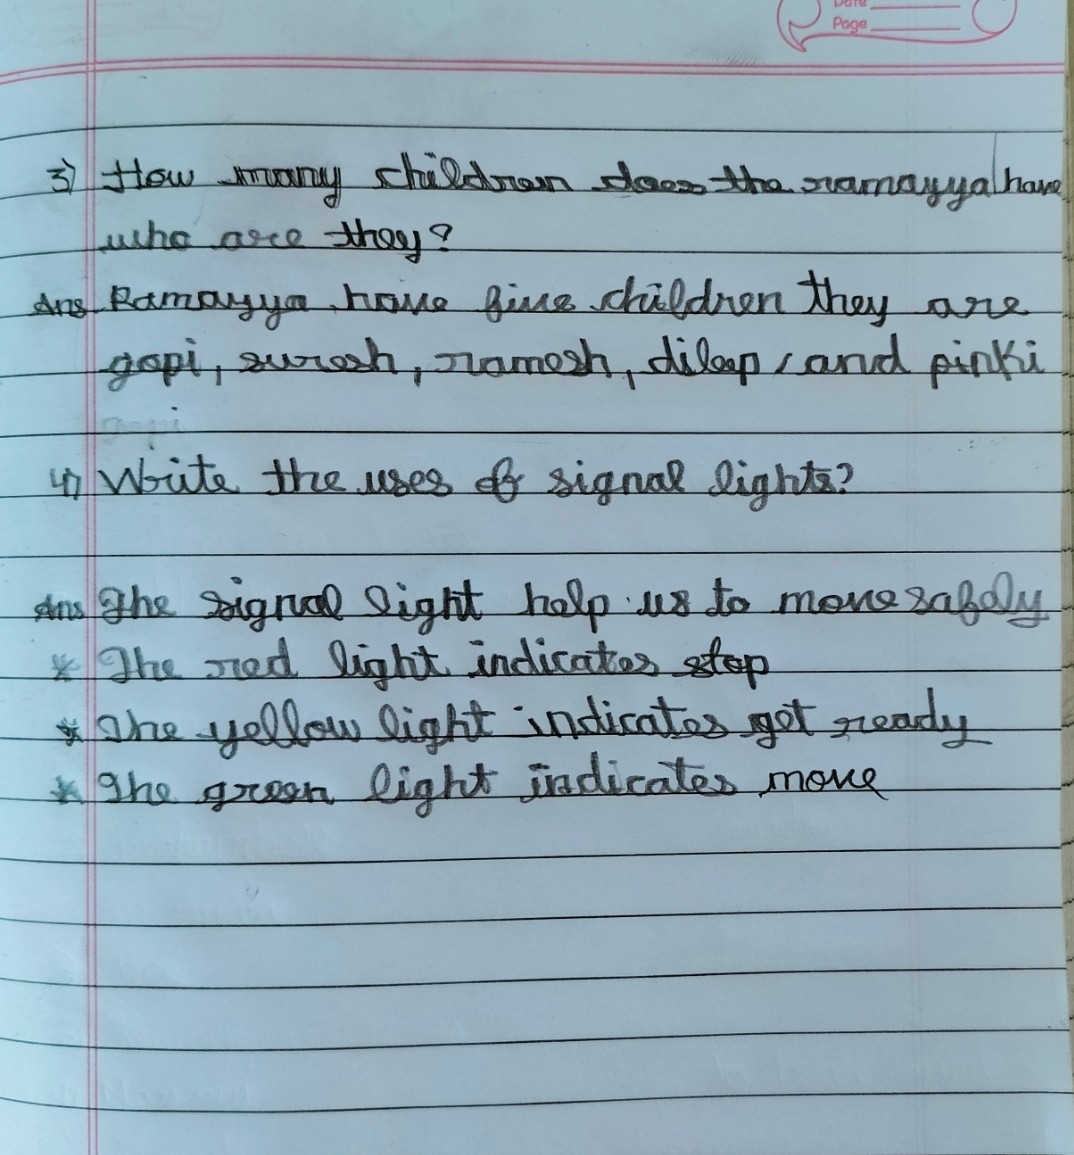 Date
Page
3) How many children does the ramayya have
who are they?
Ans Ramayya have five children they are
gopi, suresh, ramesh, dileep, and pinki
4) Write the uses of signal lights?
Ans The signal light help us to move safely
* The red light indicates stop
* The yellow light indicates get ready
* The green light indicates move